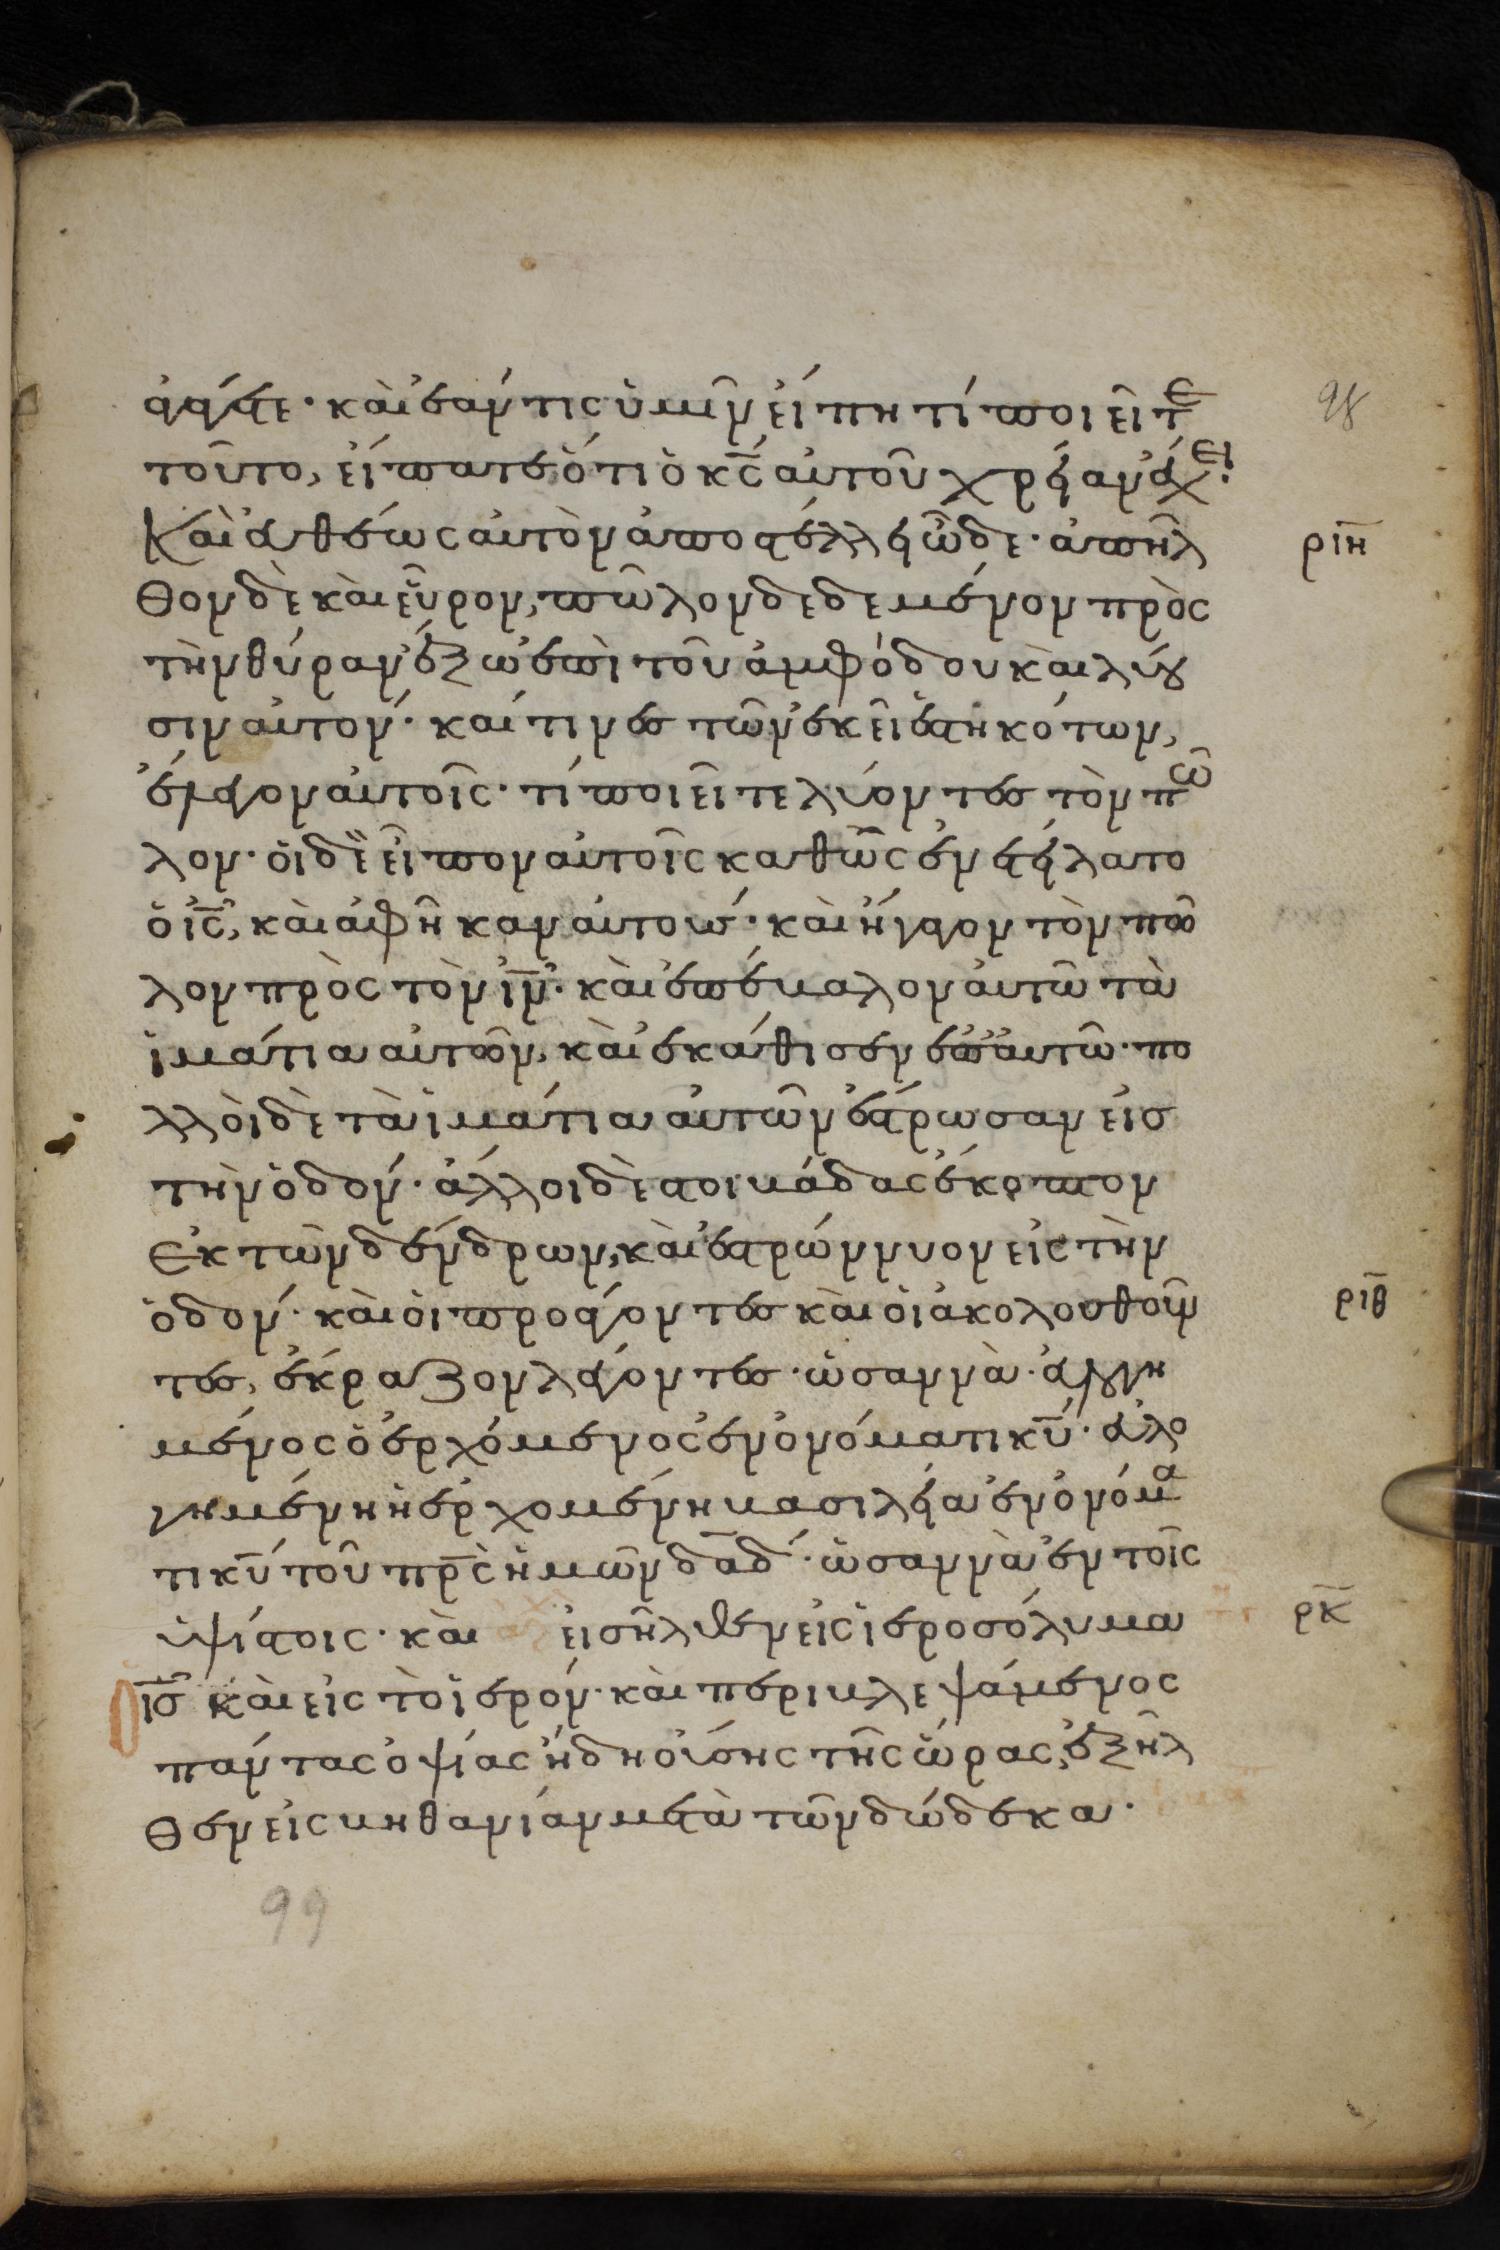 ἀγάγετε· καὶ ἐάν τις ὑμῖν εἴπη τί ποιεῖτε
τοῦτο, εἴπατε ὅτι ὁ κ̅ς̅ αὐτοῦ χρείαν ἔχει·
Καὶ εὐθέως αὐτὸν ἀποστέλλει ὧδε· ἀπῆλ
θον δὲ καὶ εὗρον, πῶλον δεδεμένον πρὸς
τὴν θύραν ἔξω ἐπὶ τοῦ ἀμφόδου καὶ λύου
σιν αὐτον· καί τινες τῶν ἐκεῖ ἑστηκότων,
ἔλεγον αὐτοῖς· τί ποιεῖτε λύοντες τὸν πῶ
λον· οἱ δὲ εἶπον αὐτοῖς καθὼς ἐνετείλατο
ὁ ι̅ς̅, καὶ ἀφῆκαν αὐτούς· καὶ ἤγαγον τὸν πῶ
λον πρὸς τὸν ι̅ν̅· καὶ ἐπέβαλον αὐτῶ τὰ
ἱμάτια αὐτῶν, καὶ ἐκάθισεν ἐπ' αὐτῶ· πο
λλοὶ δὲ τὰ ἱμάτια αὐτῶν ἔστρωσαν εἰς
τὴν ὁδόν· ἄλλοι δὲ στοιβάδας ἔκοπτον
ἐκ τῶν δένδρων, καὶ ἐστρώννυον εἰς τὴν
ὁδόν· καὶ οἱ προάγοντες καὶ οἱ ἀκολουθοῦν
τες, ἔκραζον λέγοντες· ὡσαννὰ· εὐλογη
μένος ὁ ἐρχόμενος ἐν ὀνόματι κ̅υ̅· εὐλο
γημένη ἡ ἐρχομένη βασιλεία ἐν ὀνόμα
τι κ̅υ̅ τοῦ π̅ρ̅ς̅ ἡμῶν δ̅α̅δ̅· ὡσαννὰ ἐν τοῖς
ὑψίστοις· καὶ εἰσῆλθεν εἰς ἱεροσόλυμα
ὁ ι̅ς̅ καὶ εἰς τὸ ἱερόν· καὶ περιβλεψάμενος
πάντας ὀψίας ἤδη οὔσης τῆς ὥρας, ἐξῆλ
θεν εἰς βηθανίαν μετὰ τῶν δώδεκα·
98
ρ̅ι̅η̅
ρ̅ι̅θ̅
ρ̅κ̅
99